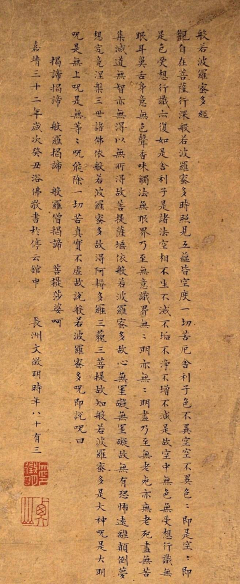 般若波羅蜜多經
觀自在菩薩行深般若波羅蜜多時照見五蘊皆空度一切苦厄舍利子色不異空空不異色〻即是空〻即
是色受想行識亦復如是舍利子是諸法空相不生不滅不垢不淨不增不減是故空中無色無受想行識無
眼耳鼻舌身意無色聲香味觸法無眼界乃至無意識界無〻明亦無〻明盡乃至無老死亦無老死盡無苦
集滅道無智亦無得以無所得故菩提薩埵依般若波羅蜜多故心無罣礙無罣礙故無有恐怖遠離顛倒夢
想究竟涅槃三世諸佛依般若波羅蜜多故得阿耨多羅三藐三菩提故知般若波羅蜜多是大神呪是大明
呪是無上呪是無等〻呪能除一切苦真實不虛故說般若波羅蜜多呪即說呪曰
揭諦揭諦 般羅揭諦 般羅僧揭諦 菩提莎婆訶
嘉靖三十二年歲次癸丑浴佛敬書於停雲館中 長洲文徵明時年八十有三